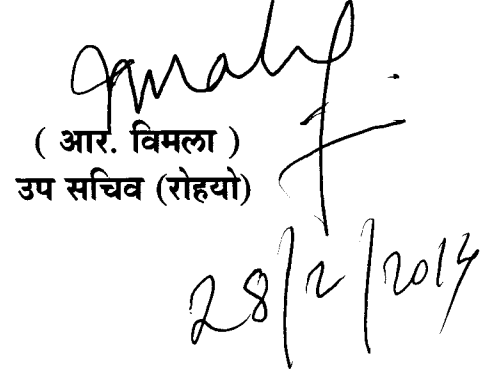 ( आर. विमला )
उप सचिव (रोहयो)
28/2/2014